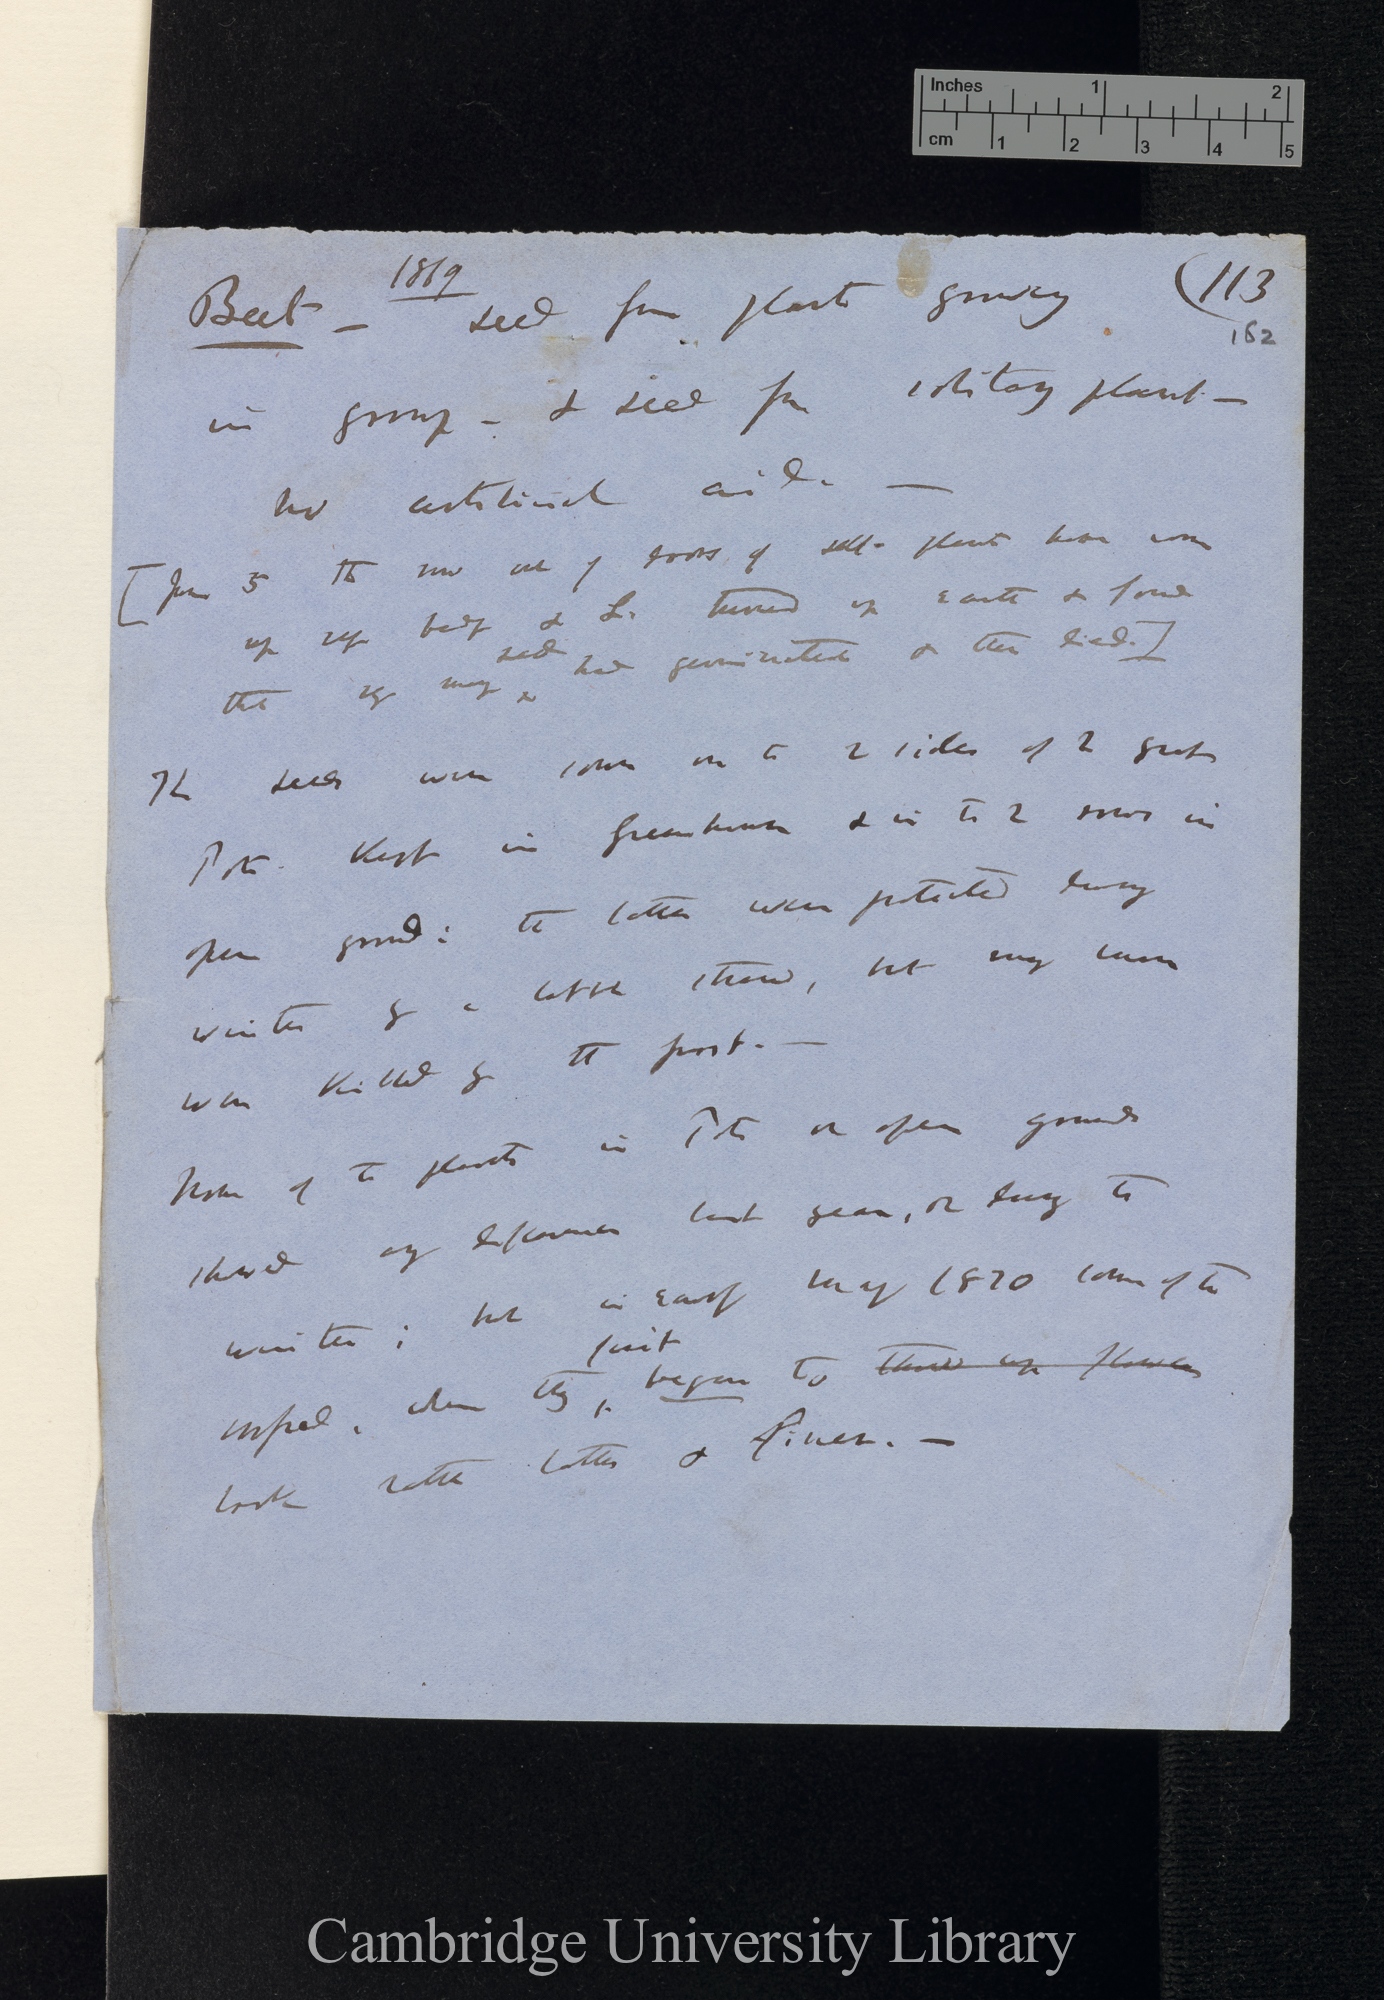 Inches 1 2
cm 1 2 3 4 5
(113
162
1869
Beet — seed from plants growing
in group — & seed from solitary plant —
no artificial aid. —
[June 5 The row out of doors of self-plants have come
up very badly & I turned up earth & found
that very many seed had germinated & then died.]
The seeds were sown on the 2 sides of 2 great
Pots. Kept in Greenhouse & in to 2 rows in
open ground: the latter were protected during
winter by a little straw, but many even
were killed by the frost. —
None of the plants in Pots or open ground
showed any difference last year, or during the
winter; but in early May 1870 some of the
crossed, when they first began to throw up flowers
look rather taller & finer. —
Cambridge University Library